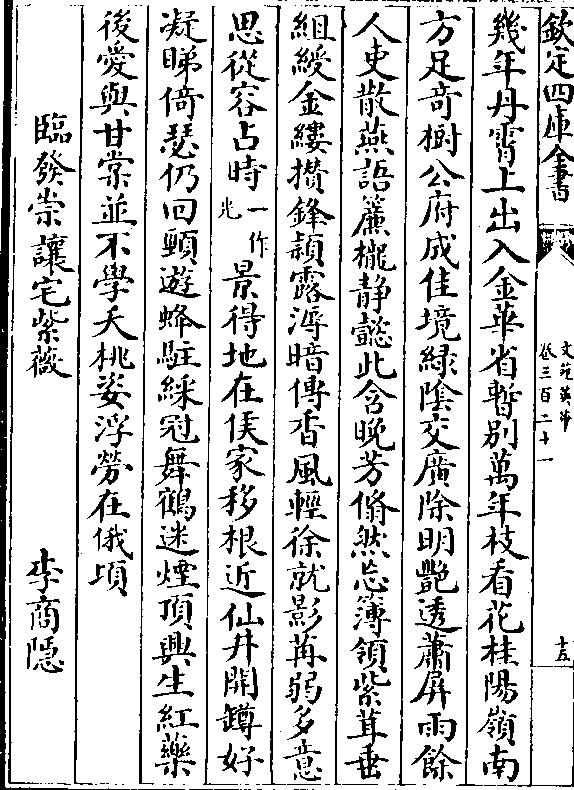 欽定四庫全書
文苑英華
卷三百二十一
十五
幾年丹霄上出入金華省暫別萬年枝看花桂陽嶺南
方足奇樹公府成佳境綠陰交廣除明艷透蕭屏雨餘
人吏散燕語簾櫳静懿此含晚芳翛然忘簿領紫茸垂
組綬金縷攅鋒穎露溽暗傳香風輕徐就影苒弱多意
思從容占時一作光景得地在侯家移根近仙井開罇好
凝睇倚瑟仍回頸遊蜂駐綵冠舞鶴迷煙頂興生紅藥
後愛與甘棠並不學夭桃姿浮勞在俄頃
臨發崇讓宅紫薇 李商隠